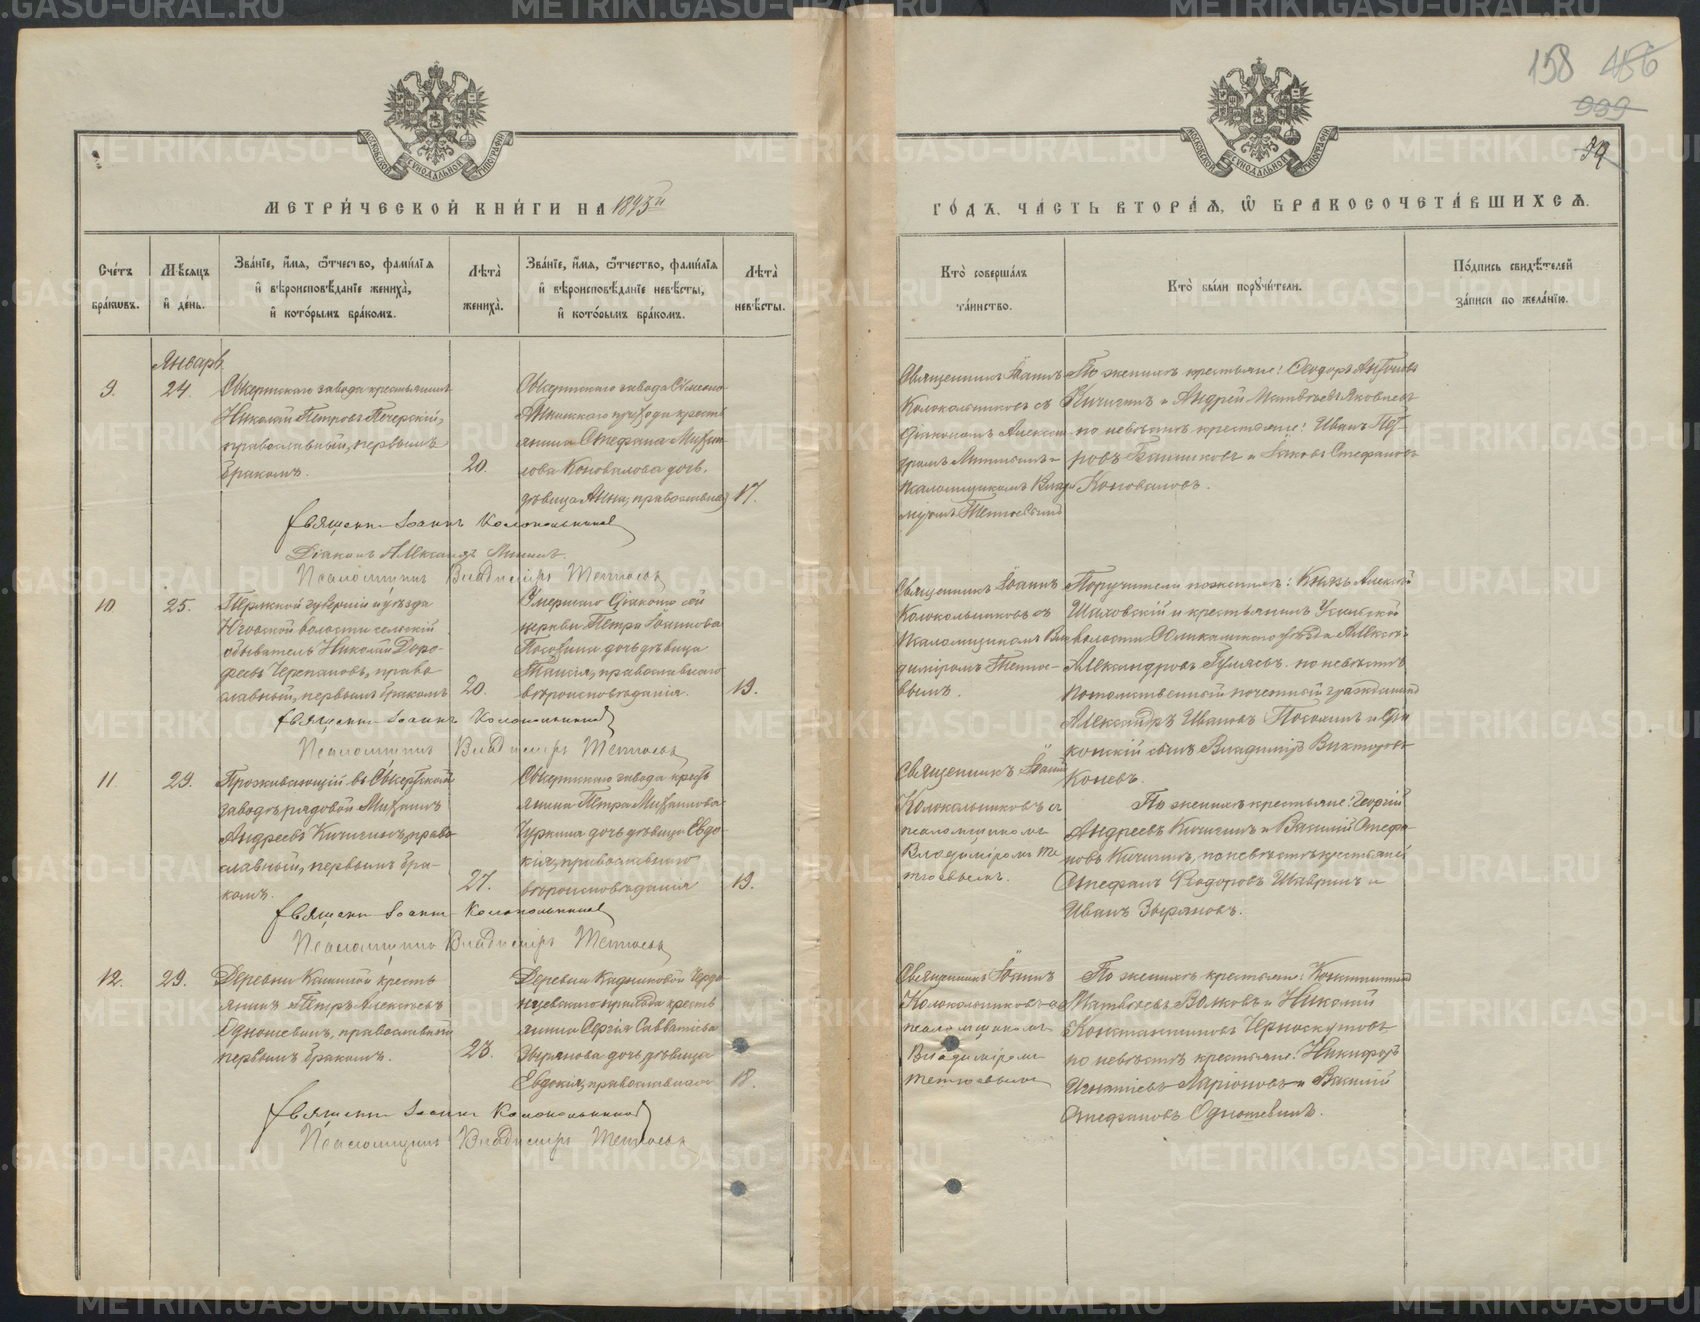 158 456
999
39
МЕТРИ́ЧЕСКОЙ КНИ́ГИ НА 1895й
ГО́ДЪ, ЧА́СТЬ ВТОРА́Я, Ѽ БРАКОСОЧЕТА́ВШИХСЯ.
МОСКОВСКОЙ СѴНОДАЛЬНОЙ ТИПОГРАФІИ
МОСКОВСКОЙ СѴНОДАЛЬНОЙ ТИПОГРАФІИ
Сче́тъ бра́кωвъ.
Мѣ́сяцъ и҆ де́нь.
Зва́нїе, и҆́мя, ѻ҆́тчество, фами́лїя и҆ вѣроисповѣ́данїе жениха̀, и҆ кото́рымъ бра́комъ.
Лѣ́та жениха̀.
Зва́нїе, и҆́мя, ѻ҆́тчество, фами́лїя и҆ вѣроисповѣ́данїе невѣ́сты, и҆ кото́рымъ бра́комъ.
Лѣ́та невѣ́сты.
Кто̀ соверша́лъ та́инство.
Кто̀ бы́ли порꙋчи́тели.
По́дпись свидѣ́телей за́писи по жела́нїю.
Январь
9.
24.
Сысертскаго завода крестьянинъ
Николай Петровъ Печерскій,
православный, первымъ
бракомъ.
20.
Сысертскаго завода Симеоно-
Аннинскаго прихода кресть
янина Стефана Михаи-
лова Коновалова дочь,
дѣвица Анна, православная
17.
Священникъ Іоаннъ
Колокольниковъ съ
діакономъ Алексан-
дромъ
псаломщикомъ Влади
міромъ Тетюевымъ
По женихѣ крестьяне: Ѳедоръ Антоновъ
Кичигинъ и Андрей Матвѣевъ Яковлевъ
по невѣстѣ крестьяне: Иванъ Пет-
ровъ и Іаковъ Стефановъ
Коноваловъ.
Священникъ Іоаннъ Колокольниковъ
Діаконъ Александръ
Псаломщикъ Владиміръ Тетюевъ
10
25.
Пермской губерніи и уѣзда
Юговской волости сельскій
обыватель Николай Доро-
феевъ Черепановъ, право
славный, первымъ бракомъ
20.
Умершаго діакона сей
церкви Петра Іоаннова
дочь дѣвица
Таисія, православнаго
вѣроисповѣданія.
19.
Священникъ Іоаннъ
Колокольниковъ съ
псаломщикомъ Вла
диміромъ Тетюе-
вымъ.
Поручители по женихѣ: Князь Алексѣй
Шаховскій и крестьянинъ
волости Соликамскаго уѣзда Алексѣй
Александровъ Гуляевъ. по невѣстѣ
потомственный почетный гражданинъ
Александръ Ивановъ и діа
конскій сынъ Владиміръ Викторовъ
Коневъ.
Священникъ Іоаннъ Колокольниковъ
Псаломщикъ Владиміръ Тетюевъ
11.
29.
Проживающій въ Сысертскомъ
заводѣ рядовой Михаилъ
Андреевъ Кичигинъ, право
славный, первымъ бра-
комъ.
27.
Сысертскаго завода кресть
янина Петра Михаилова
Чуркина дочь дѣвица Евдо
кія, православнаго
вѣроисповѣданія
19.
Священникъ Іоаннъ
Колокольниковъ съ
псаломщикомъ
Владиміромъ Те
тюевымъ.
По женихѣ крестьяне: Георгій
Андреевъ Кичигинъ и Василій Стефа
новъ Кичигинъ, по невѣстѣ крестьяне
Стефанъ Ѳеодоровъ Шавринъ и
Иванъ Зыряновъ.
Священникъ Іоаннъ Колокольниковъ
Псаломщикъ Владиміръ Тетюевъ
12.
29.
Деревни Кашиной кресть
янинъ Петръ Алексѣевъ
Одношевинъ, православный
первымъ бракомъ.
23.
Деревни Кадниковой Чердо-
нцевскаго прихода кресть
янина Сергія Савватіева
Зырянова дочь дѣвица
Евдокія, православнаго
18.
Священникъ Іоаннъ
Колокольниковъ съ
псаломщикомъ
Владиміромъ
Тетюевымъ
По женихѣ крестьяне: Константинъ
Матвѣевъ Волковъ и Николай
Константиновъ Черноскутовъ
по невѣстѣ крестьяне: Никифоръ
Игнатіевъ Ларіоновъ и Василій
Стефановъ Одношевинъ.
Священникъ Іоаннъ Колокольниковъ
Псаломщикъ Владиміръ Тетюевъ
METRIKI.GASO-URAL.RU